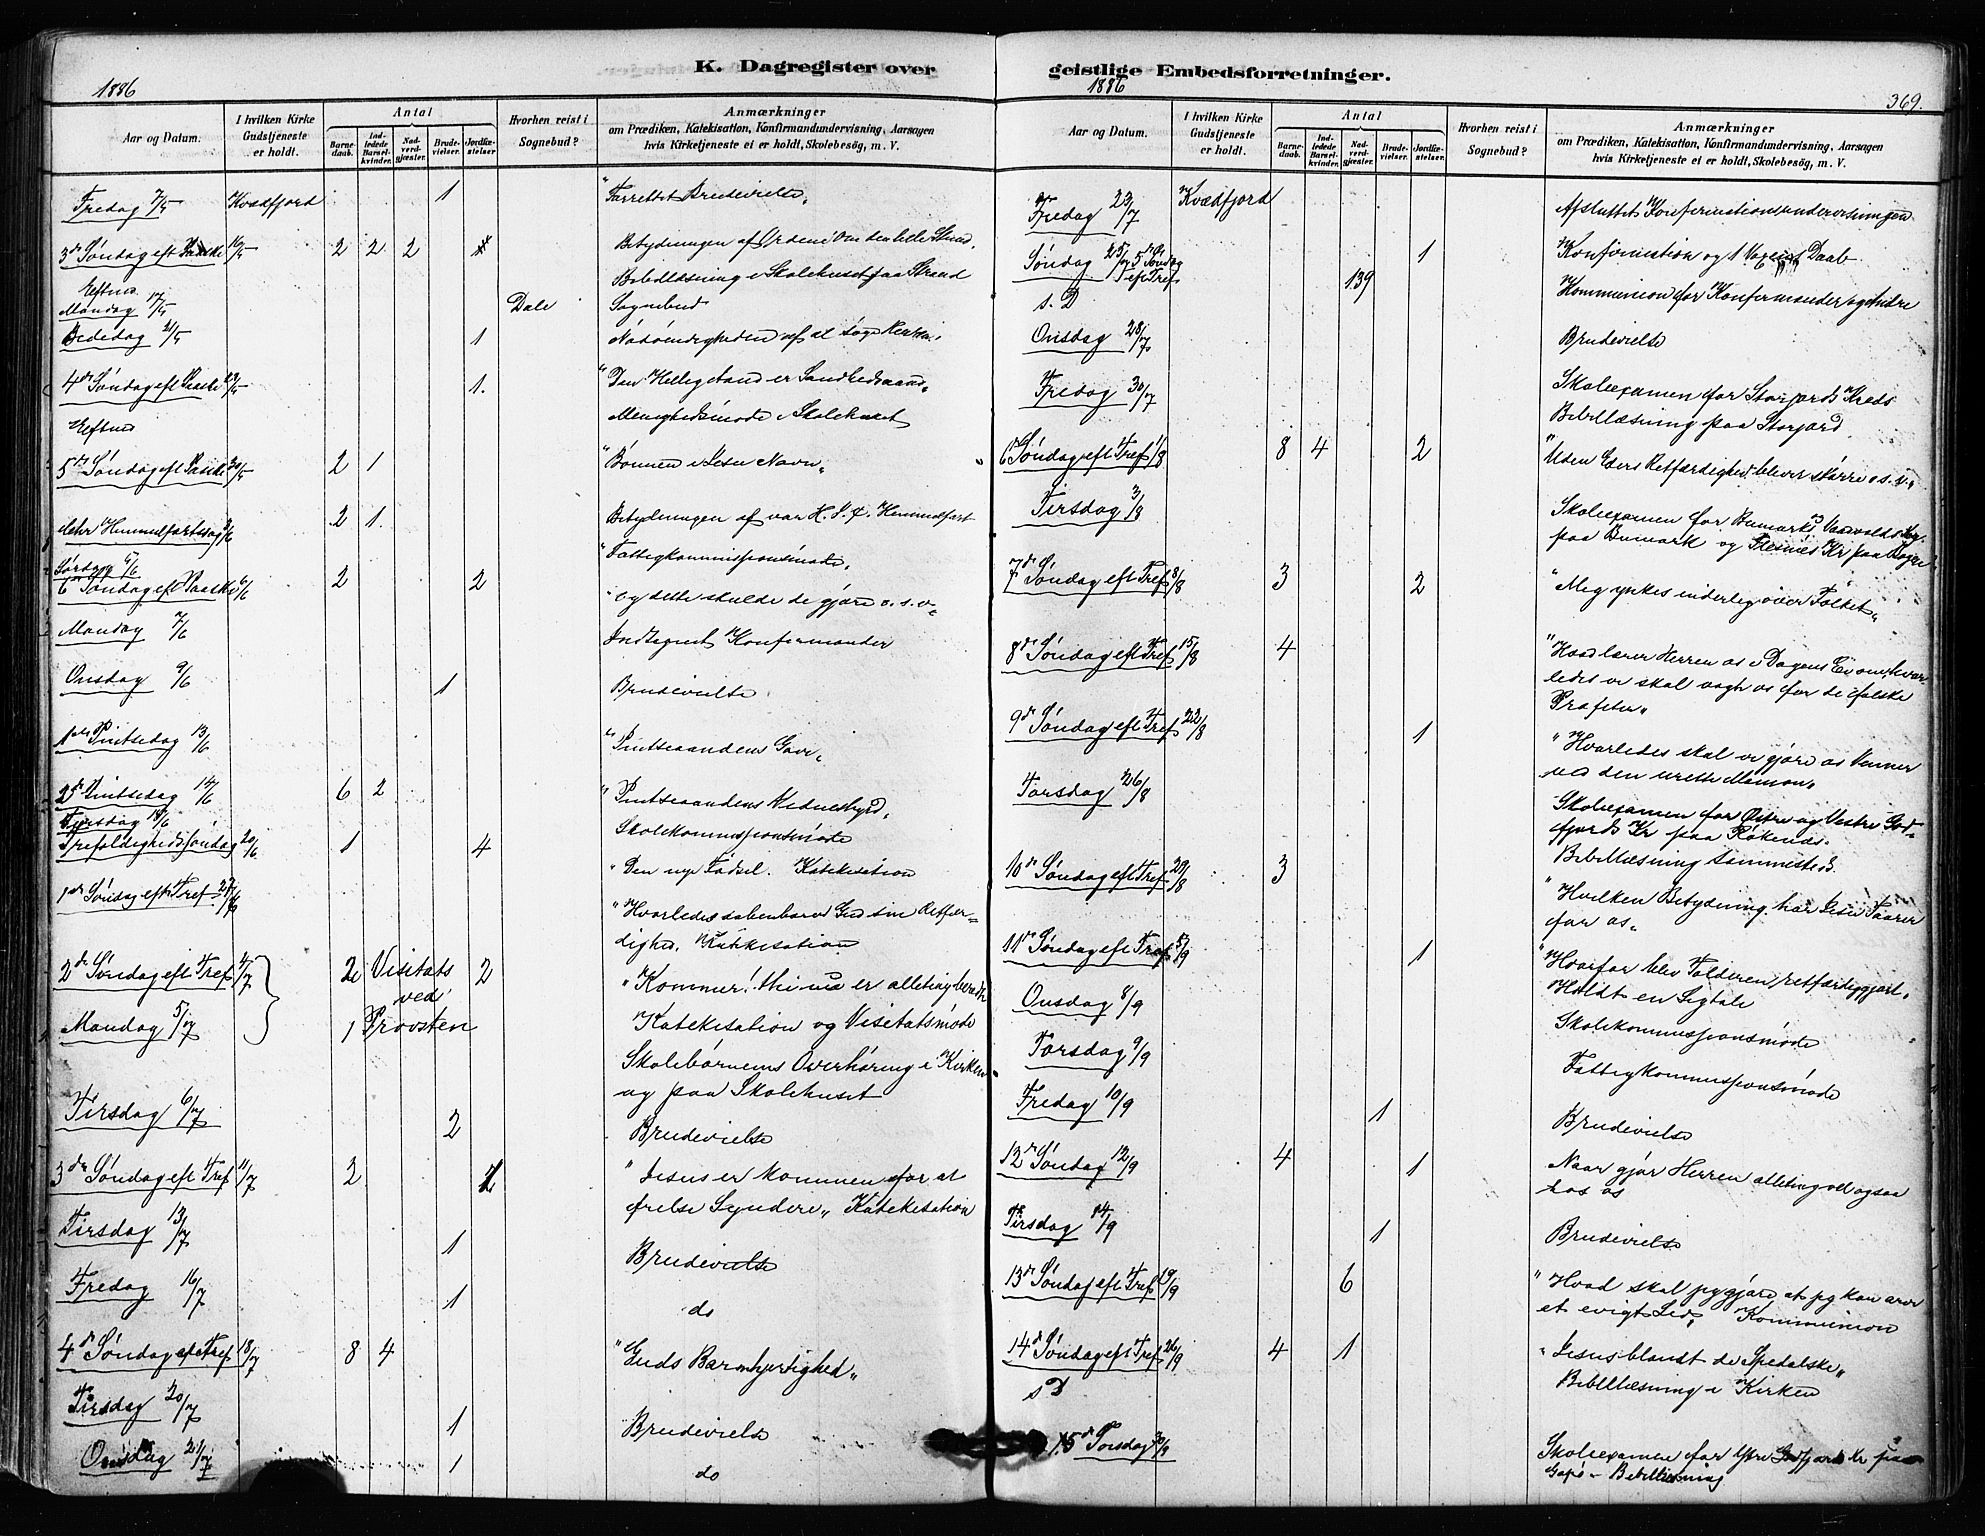 K. Dagregister over
1886
Aar og Datum.
I hvilken Kirke Gudstjeneste er holdt.
Antal
Barnedaab.
Indledede Barselkvinder.
Nadverdgjæster.
Brudevielser.
Jordfæstelser.
Hvorhen reist i Sognebud?
Anmærkninger
om Prædiken, Katekisation, Konfirmandundervisning, Aarsagen
hvis Kirketjeneste ei er holdt, Skolebesög, m. V.
Fredag 7/5 Kvædfjord 1 Forrettet Brudevielse
3die Søndag eft Paaske 16/5 2 2 2 Betydningen af Ordene Om den lille Stund
Eftmd. Bibellæsning i Skolehuset paa Strand
Mandag 17/5 Dale Sognebud
Bededag 21/5 1 Nødvendigheden af at søge Herren.
4de Søndag eft Paaske 23/5 1. "Den Helligaand er Sandheds aand"
Eftmd Menighedsmøde i Skolehuset
5te Søndag eft Paaske 30/5 2 1 "Bønnen i Jesu Navn"
Himmelfartsdag 3/6 2 1. Betydningen af vor H. J. C. Himmelfart
Lørdag 5/6 Fattigkommissionsmøde
6te Søndag eft Paaske 6/6 2 2 "og dette skulde de gjøre o.s.v."
Mandag 7/6 Indtegnet Konfirmander
Onsdag 9/6 1 Brudevielse
1ste Pintsedag 13/6 "Pintseaandens Gave"
2den Pintsedag 14/6 6 2 "Pintseaandens Vidnesbyrd"
Skolekommissionsmøde
Trefoldighedssøndag 20/6 1 4 "Den nye Fødsel. Katekisation
1ste Søndag efter Tref 27/6 "Hvorledes aabenbarer Gud sin Retfær-
dighed. Katekisation
2den Søndag eft Tref 4/7 2 Visitats 2 "Kommer! thi nu er alleting beredt
ved
Mandag 5/7 1 Provsten Katekisation og Visitatsmøde
Skolebørnens Overhøring i Kirken
og paa Skolehuset
Tirsdag 6/7 2 Brudevielse
3die Søndag eft Tref 11/7 2 "Jesus er kommen for at
frelse Syndere" Katekisation
Tirsdag 13/7 1 Brudevielse
Fredag 16/7 1 do
4de Søndag eft Tref 18/7 8 4 "Guds Barmhjertighed"
Tirsdag 20/7 1 Brudevielse
Onsdag 21/7 1 do
geistlige Embedsforretninger.
1886
369.
Aar og Datum.
I hvilken Kirke Gudstjeneste er holdt.
Antal
Barnedaab.
Indledede Barselkvinder.
Nadverdgjæster.
Brudevielser.
Jordfæstelser.
Hvorhen reist i Sognebud?
Anmærkninger
om Prædiken, Katekisation, Konfirmandundervisning, Aarsagen
hvis Kirketjeneste ei er holdt, Skolebesög, m. V.
Fredag 23/7 Kvædfjord Afsluttet Konfirmationsundervisningen
Søndag 25/7 5te Søndag eft Tref 1 Konfirmation og 1 Voxen Daab
s. D 139 Kommunion for Konfirmander og Andre
Onsdag 28/7 Brudevielse
Fredag 30/7 Skoleexamen for Storjords Kreds
Bibellæsning paa Storjord
6te Søndag eft Tref 1/8 8 4 2 "Uden Eders Retfærdighed bliver større o.s.v."
Tirsdag 3/8 Skoleexamen for Bumarks og
paa Bumark og Flesnes Kr paa
7de Søndag eft Tref 8/8 3 2 "Mig ynkes inderlig over Folket"
8de Søndag eft Tref 15/8 4 "Hvad lærer Herren os i Dagens Ev om, hvor-
ledes vi skal vogte os for de falske
Profeter"
9de Søndag eft Tref 22/8 1 "Hvorledes skal vi gjøre os Venner
ved den urette Mamon"
Torsdag 26/8 Skoleexamen for Østre og Vestre God-
fjords Kr paa Røkenes.
Bibellæsning sammesteds
10de Søndag eft Tref 29/8 3 "Hvilken Betydning har Jesu Taarer
for os"
11te Søndag eft Tref 5/9 1 "Hvorfor blev Tolderen retfærdiggjort.
Onsdag 8/9 Holdt en Ligtale
Skolekommissionsmøde
Torsdag 9/9 Fattigkommissionsmøde
Fredag 10/9 1 Brudevielse
12te Søndag 12/9 4 1 Naar gjør Herren alleting vel ogsaa
hos os
Tirsdag 14/9 1 Brudevielse
13de Søndag eft Tref 19/9 6 "Hvad skal jeg gjøre, at jeg kan arve
et evigt Liv" Kommunion
14de Søndag eft Tref 26/9 4 1 "Jesus blandt de Spedalske"
s D Bibellæsning i Kirken
Torsdag 30/9 Skoleexamen for Kr paa
Bibellæsning